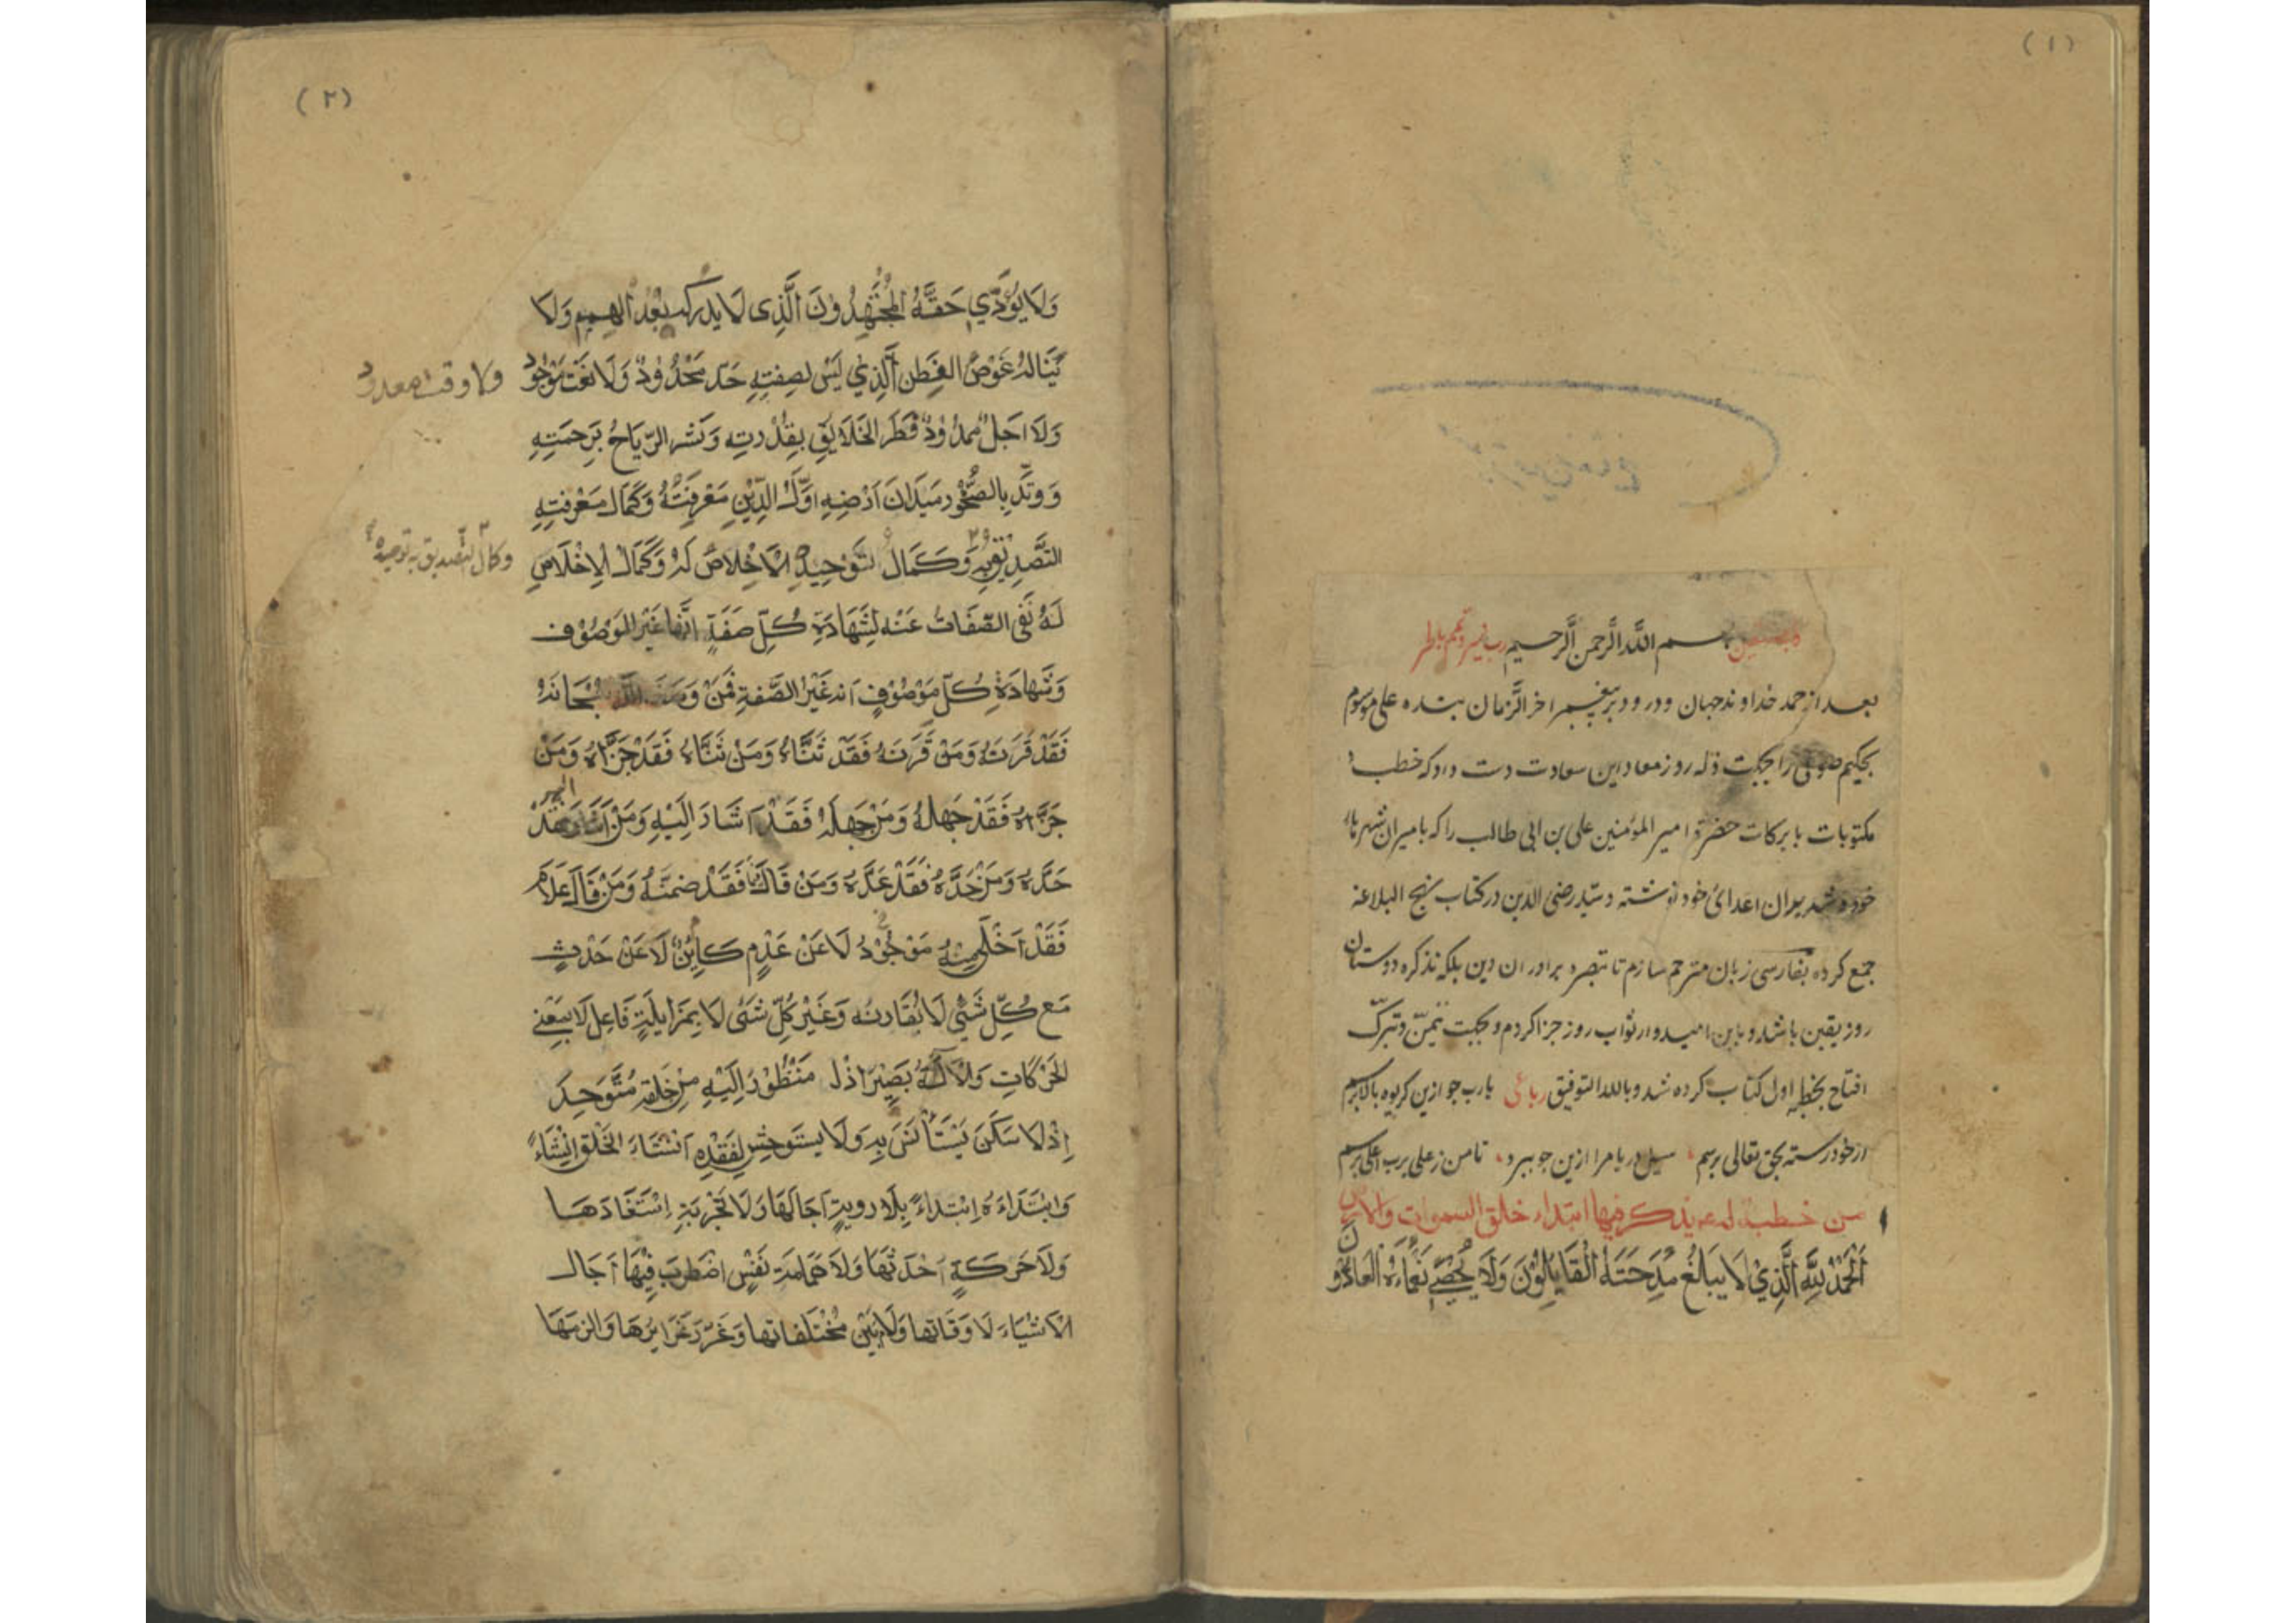 (١)
و به نستعین بسم الله الرحمن الرحیم رب یسر وتمم
بعد از حمد خداوند جهان و درود بر پیغمبر آخر الزمان بنده علی موسوم
بحکیم صوفی را بجهت ذله روز معاد این سعادت دست داد که خطب
مکتوبات با برکات حضرة امیر المؤمنین علی بن ابی طالب را که بامیران شهرها
خود و اعدای خود نوشته و سید رضی الدین در کتاب نهج البلاغه
جمع کرده بفارسی زبان مترجم سازم تا تبصره برادران دین بلکه تذکره دوستان
روز یقین باشد و باین امید وار ثواب روز جزا کردم و بجهت تیمن و تبرک
افتتاح بخطبه اول کتاب کرده شد و بالله التوفیق رباعی یارب چو ازین کریوه بالا برسم
از خود رسته بحق تعالی برسم سیل در یا مرا ازین جو ببرد تا من ز علی برب اعلی برسم
من خطبة له ع یذکر فیها ابتداء خلق السموات والارض
اَلْحَمْدُ لِلّٰهِ الَّذِيْ لَا يبالغ مِدْحَتَهُ الْقَايِلُوْنَ وَلَا يُحْصِي نَعْمَاءَهُ العَادُّوْنَ
(٢)
وَلَا يُؤَدِّي حَقَّهُ الْمُجْتَهِدُوْنَ الَّذِى لَا يدركه بُعْدُ الهِمَمِ وَلَا
يَنَالُهُ غَوْصُ الفِطَنِ الَّذِي لَيْسَ لصِفَتِهِ حَدٌّ مَحْدُوْدٌ وَلَا نَعْتٌ مَوْجُوْدٌ
ولا وقت معدود
وَلَا اَجَلٌ مَمْدُوْدٌ فَطَرَ الخَلَايِقَ بِقُدْرتِه وَنَشَر الرِّيَاحَ بِرَحمَتِهِ
وَوَتَّدَ بِالصُّخُوْرِ مَيَدَانَ اَرْضِهِ اَوَّلُ الدِّيْنِ مَعْرِفَتُهُ وَكَمَالُ مَعْرِفتِهِ
التَّصْدِيْقُ بِه وَكَمَالُ تَوْحِيْدِهِ الْاِخْلَاصُ لَهُ وَكَمَالُ الْاِخْلَاصِ
وكمال التصديق به توحيده
لَهُ نَفْيُ الصِّفَاتِ عَنْهُ لِشَهَادَةِ كُلِّ صِفَةٍ اَنَّهَا غَيْرُ المَوْصُوْف
وَشَهَادَةِ كُلِّ مَوْصُوْفٍ اَنه غَيْرُ الصِّفَةِ فَمَنْ وَصَفَ اللّٰهَ سُبْحَانَهُ
فَقَدْ قَرَنَهُ وَمَنْ قَرَنَهُ فَقَدْ ثَنَّاهُ وَمَنْ ثَنَّاهُ فَقَدْ جَزَّاهُ وَمَنْ
جَزَّاهُ فَقَدْ جَهِلَهُ وَمَنْ جَهِلَهُ فَقَدْ اَشَارَ اِلَيْهِ وَمَنْ اَشَارَ اليه فَقَدْ
حَدَّهُ وَمَنْ حَدَّهُ فَقَدْ عَدَّهُ وَمَنْ قَالَ فيم فَقَدْ ضَمَّنَهُ وَمَنْ قَالَ عَلَامَ
فَقَدْ اَخْلَى مِنْهُ مَوْجُوْدٌ لَا عَنْ عَدَمٍ كَايِنٌ لَا عَنْ حَدَثٍ
مَعَ كُلِّ شَيْءٍ لَا بمُقَارنة وَغَيْرُ كُلِّ شَىْءٍ لَا بِمُزَايلَةٍ فَاعِلٌ لَا بِمَعْنى
الحَرَكَاتِ وَالْاٰلَةِ بَصِيْرٌ اِذْ لَا مَنْظُوْرَ اِلَيْهِ مِنْ خَلقِهِ مُتَوَحِّدٌ
اِذْ لَا سَكَنَ يَسْتَأْنسُ بِهِ وَلَا يَسْتَوحِشُ لِفَقْدِهِ اَنْشَاءَ الخَلْقَ اِنْشَاءً
وَابْتَدَاءَهُ اِبْتِدَاءً بِلَا رويةٍ اَجَالَهَا وَلَا تَجْرِبَةٍ اِسْتَفَادَهَا
وَلَا حَرَكَةٍ اَحْدَثَهَا وَلَا هَمَامَةِ نَفْسٍ اضْطَرَبَ فِيْهَا اَجَالَ
الْاَشْيَاءَ لَاوقَاتِهَا وَلَامَ بَيْنَ مُخْتَلفَاتِهَا وَغَرَّزَ غَرَايزَهَا وَالزمَهَا